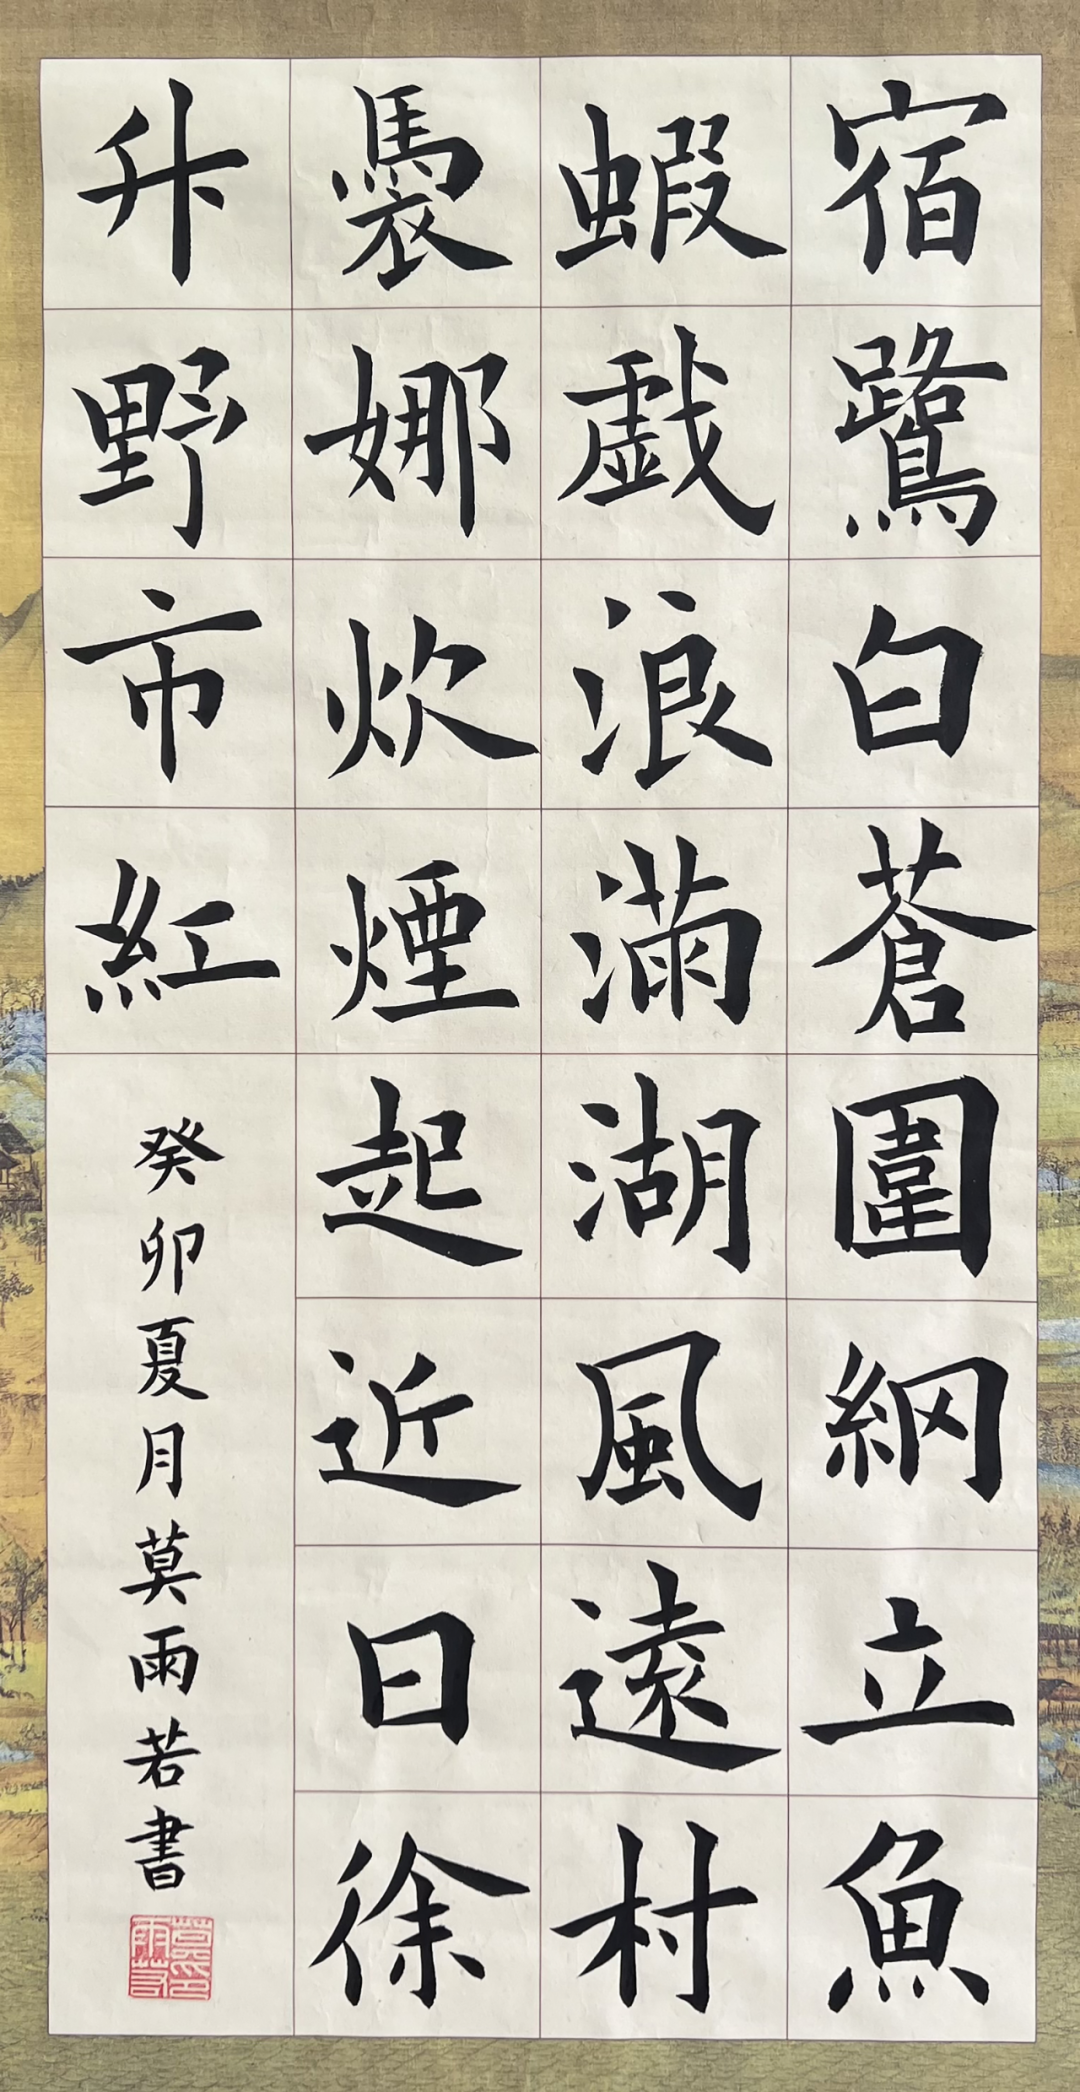 宿鷺白蒼圍網立魚
蝦戯浪滿湖風遠村
褭娜炊煙起近日徐
升野市紅
癸卯夏月莫雨若書